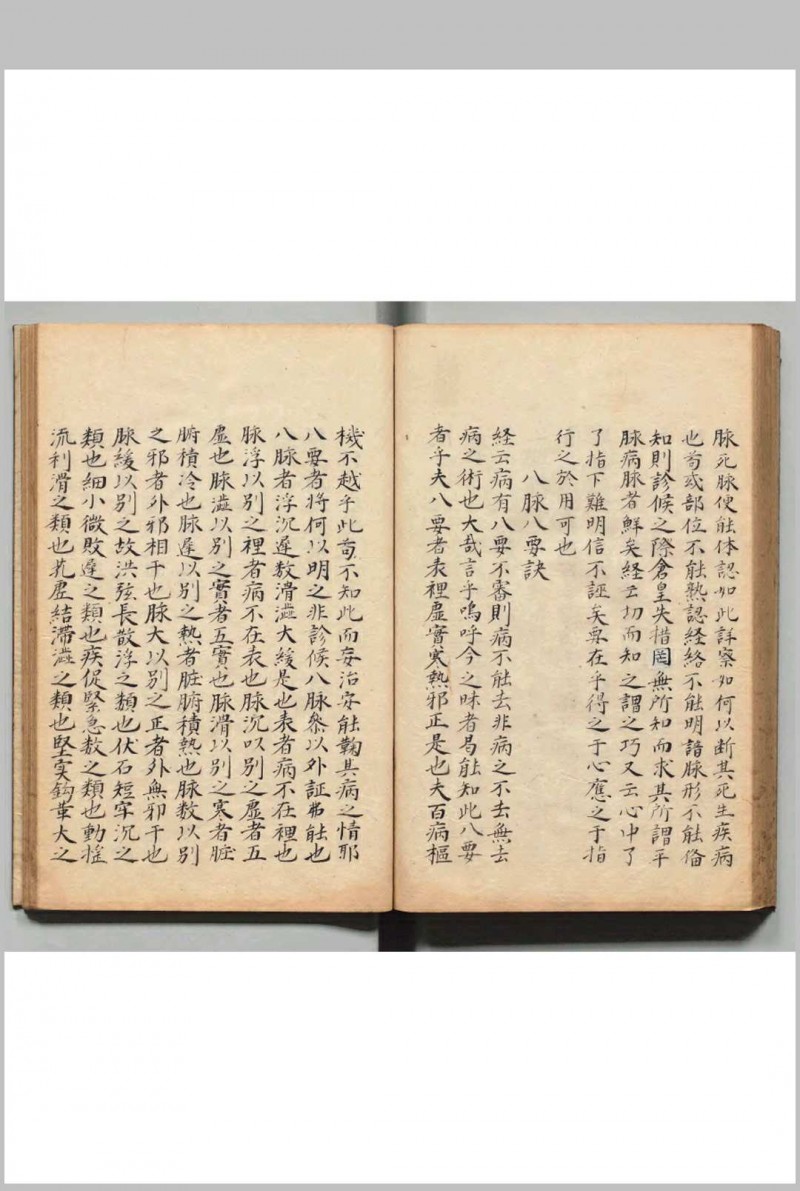 脉死脉便能体認如此詳察如何以断其死生疾病
也苟或部位不能熟認経絡不能明諳脉形不能俻
知則診候之際倉皇失措罔無所知而求其所謂平
脉病脉者鮮矣経云切而知之謂之巧又云心中了
了指下難明信不誣矣要在乎得之于心應之于指
行之於用可也
八脉八要訣
経云病有八要不審則病不能去非病之不去無去
病之術也大哉言乎嗚呼今之昧者曷能知此八要
者乎夫八要者表裡虚實寒熱邪正是也夫百病樞
機不越乎此苟不知此而妄治安能鞫其病之情耶
八要者将何以明之非診候八脉叅以外証弗能也
八脉者浮沉遲数滑澁大緩是也表者病不在裡也
脉浮以别之裡者病不在表也脉沉以别之虚者五
虚也脉澁以别之實者五實也脉滑以别之寒者脏
腑積冷也脉遲以别之熱者脏腑積熱也脉数以别
之邪者外邪相干也脉大以别之正者外無邪干也
脉緩以别之故洪弦長散浮之類也伏石短牢沉之
類也細小微敗遲之類也疾促緊急数之類也動揺
流利滑之類也芤虚結滯澁之類也堅实鈎革大之